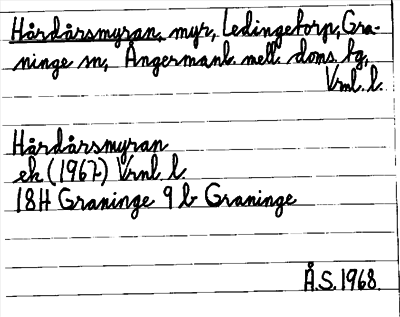 Hårdårsmyran, myr, Ledingetorp, Gra-
ninge sn, Ångermanl. mell. doms. tg,
Vrnl. l.
Hårdårsmyran
ek (1967) Vrnl. l.
18H Graninge 9 b Graninge
Å.S. 1968.